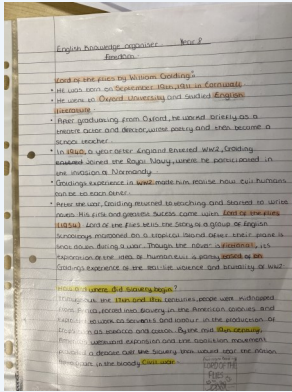 English Knowledge organiser - Year 8
Freedom
Lord of the flies by William Golding:
• He was born on September 19th, 1911 in Cornwall
• He went to Oxford University and studied English
Literature.
• After graduating from Oxford, he worked briefly as a
theatre actor and director, wrote poetry and then became a
school teacher.
• In 1940, a year after England entered WW2, Golding
joined the Royal Navy, where he participated in
the invasion of Normandy.
• Goldings experience in WW2 made him realise how evil humans
can be to each other.
• After the war, Golding returned to teaching and started to write
novels. His first and greatest success came with Lord of the flies
(1954). Lord of the flies tells the story of a group of English
schoolboys marooned on a tropical island after their plane is
shot down during a war. Though the novel is fictional, its
exploration of the idea of human evil is partly based on
Goldings experience of the real-life violence and brutality of WW2.
How and where did slavery begin?
Throughout the 17th and 18th centuries people were kidnapped
from Africa, forced into slavery in the American colonies and
exploited to work as servants and labour in the production of
crops such as tobacco and cotton. By the mid 19th century,
America's westward expansion and the abolition movement
provoked a debate over the slavery that would tear the nation
apart in the bloody Civil war.
LORD OF
THE
FLIES